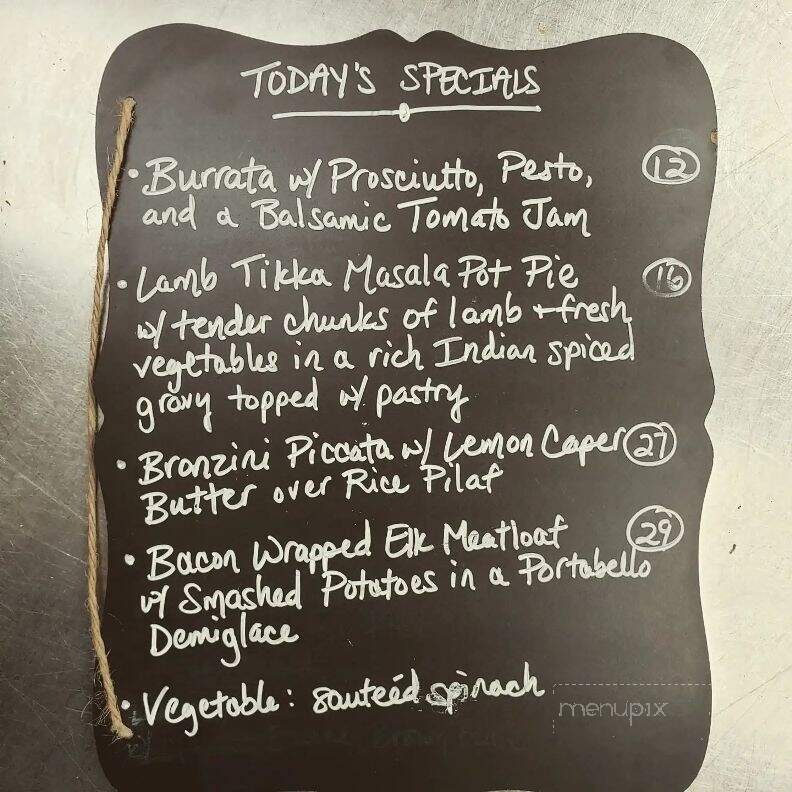 TODAY'S SPECIALS
• Burrata w/ Prosciutto, Pesto, 12
and a Balsamic Tomato Jam
• Lamb Tikka Masala Pot Pie 16
w/ tender chunks of lamb + fresh
vegetables in a rich Indian spiced
gravy topped w/ pastry
• Bronzini Piccata w/ Lemon Caper 27
Butter over Rice Pilaf
• Bacon Wrapped Elk Meatloaf 29
w/ Smashed Potatoes in a Portabello
Demiglace
• Vegetable: sauteéd spinach
menupix